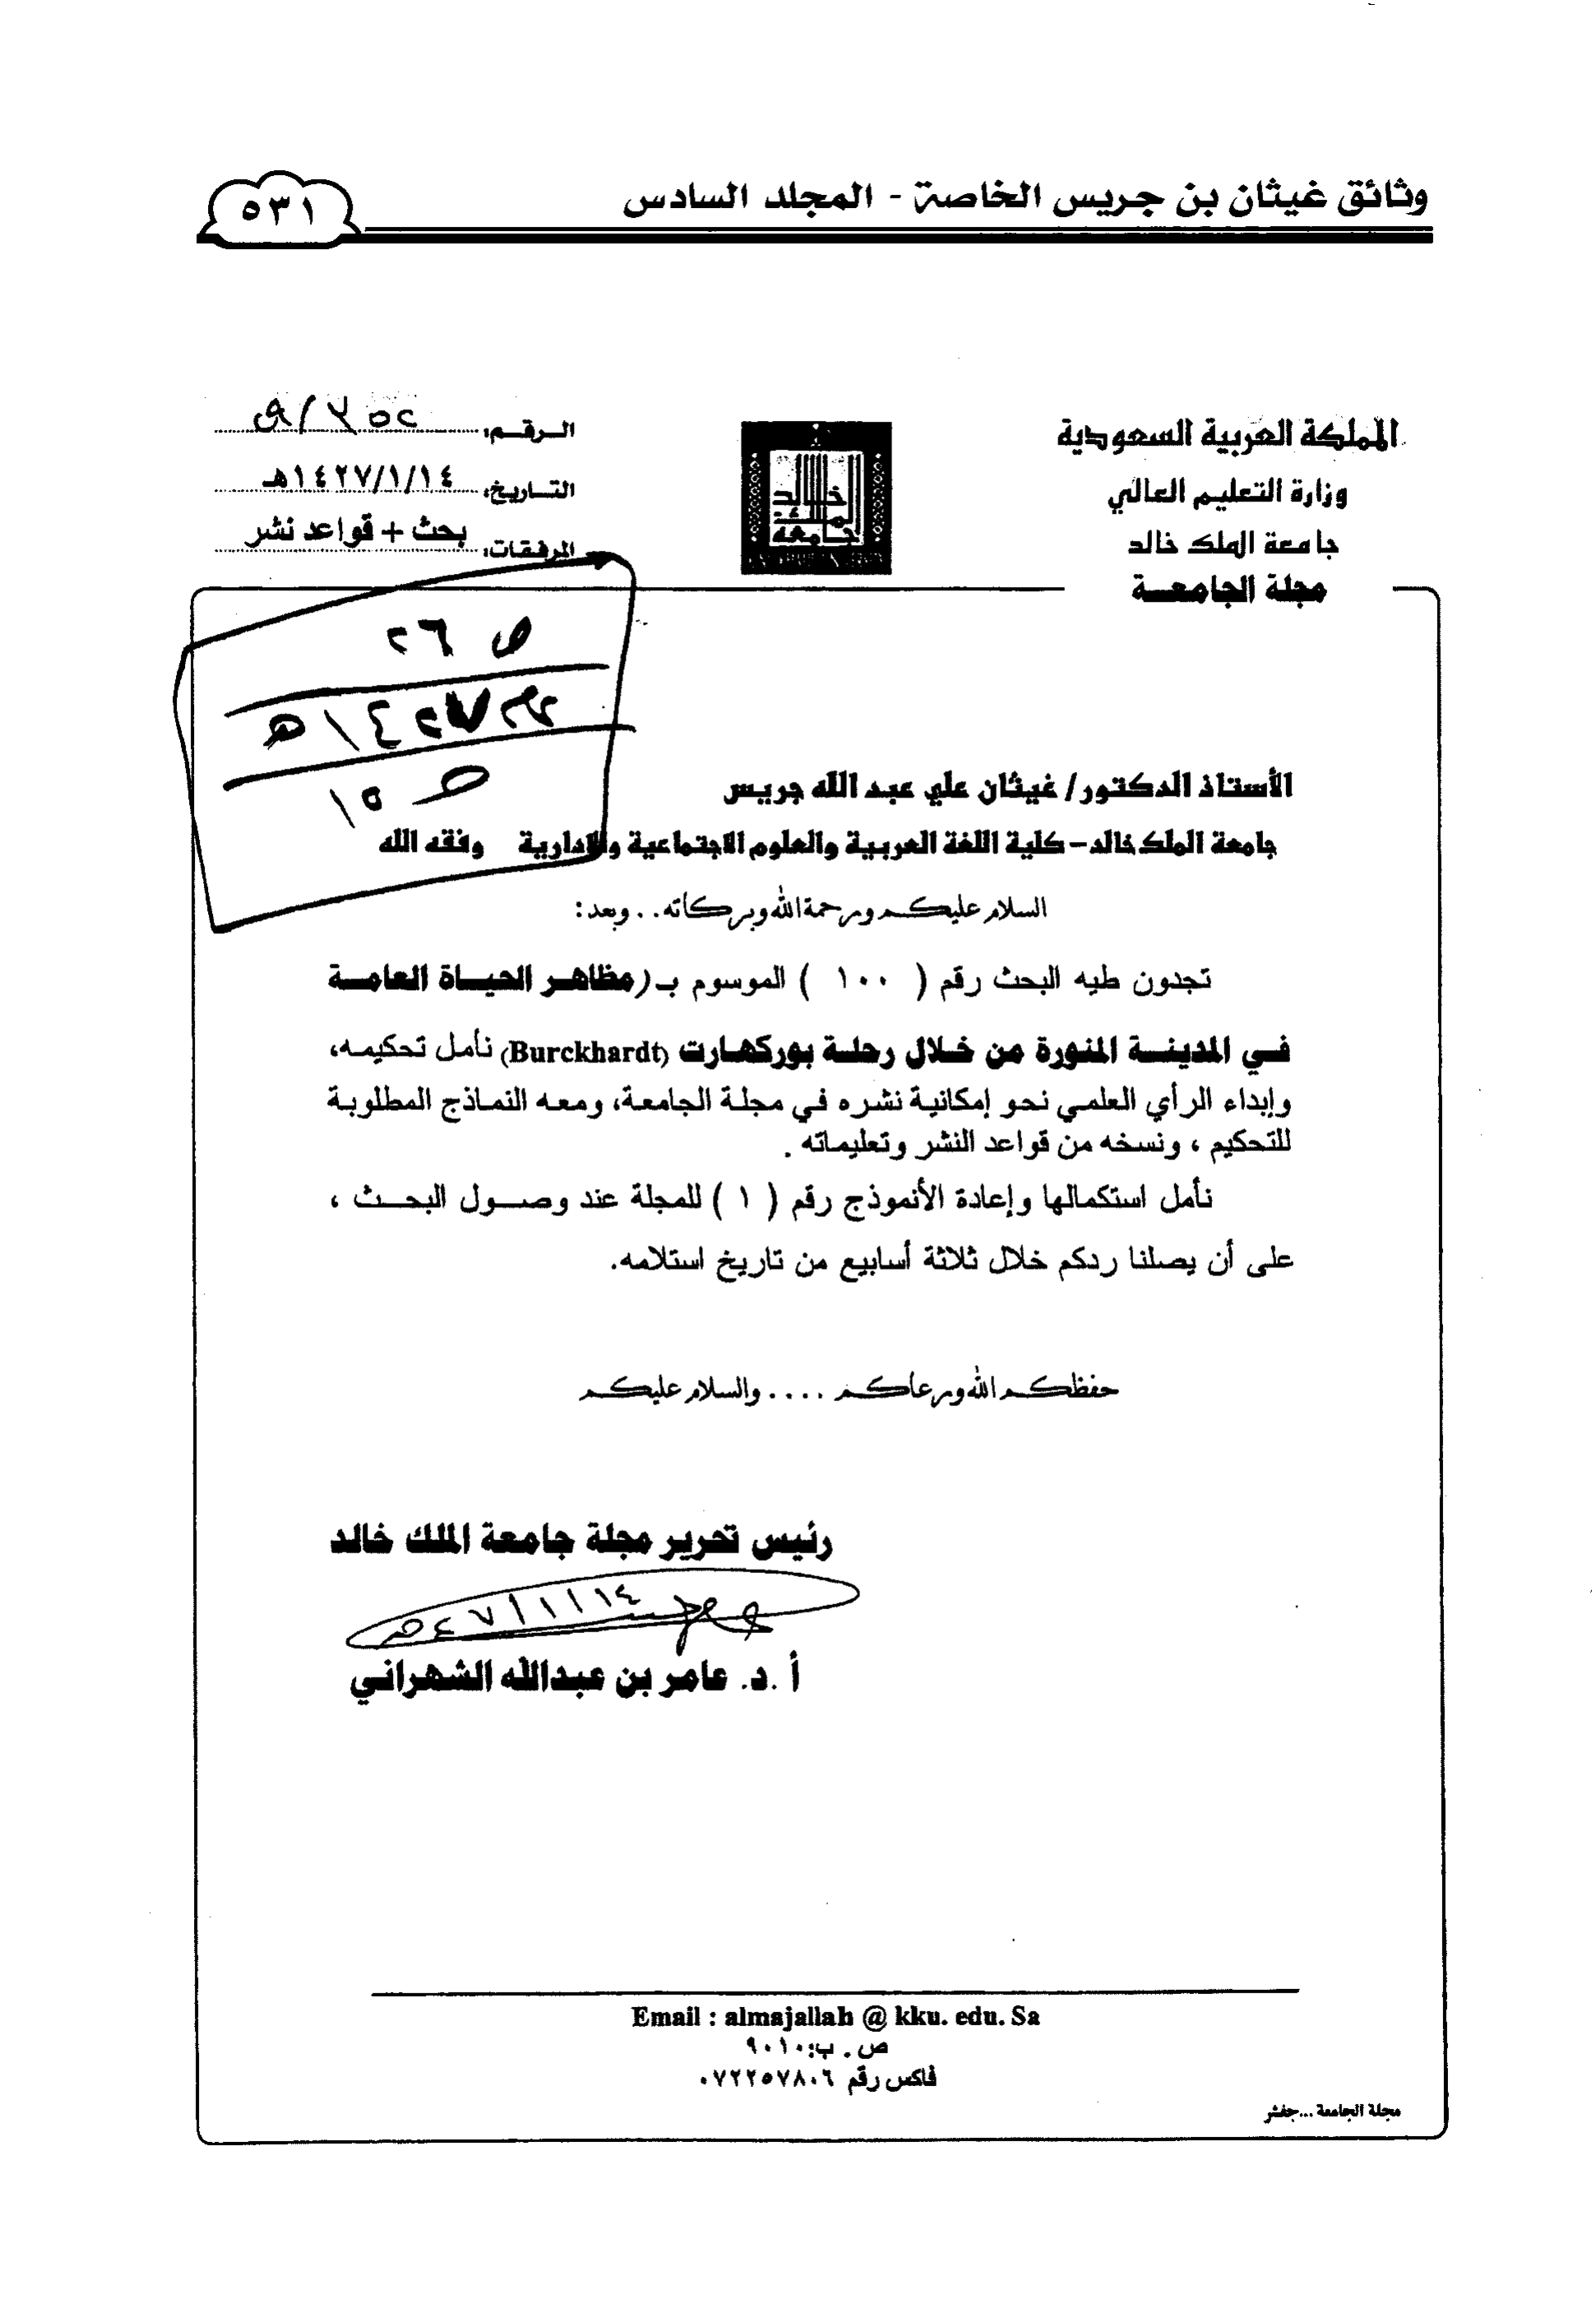 وثائق غيثان بن جريس الخاصة - المجلد السادس
٥٣١
المملكة العربية السعودية
وزارة التعليم العالي
جامعة الملك خالد
مجلة الجامعة
جامعة الملك خالد
الرقم:
التاريخ: ١٤٢٧/١/١٤هـ
المرفقات: بحث + قواعد نشر
ص ٢٦
١٤٢٧هـ
ص ١٥
الأستاذ الدكتور/ غيثان علي عبد الله جريس
جامعة الملك خالد – كلية اللغة العربية والعلوم الاجتماعية والإدارية وفقه الله
السلام عليكم ورحمة الله وبركاته.. وبعد:
تجدون طيه البحث رقم ( ١٠٠ ) الموسوم بـ (مظاهر الحياة العامة
في المدينة المنورة من خلال رحلة بوركهارت (Burckhardt) نأمل تحكيمه،
وإبداء الرأي العلمي نحو إمكانية نشره في مجلة الجامعة، ومعه النماذج المطلوبة
للتحكيم ، ونسخه من قواعد النشر وتعليماته .
نأمل استكمالها وإعادة الأنموذج رقم ( ١ ) للمجلة عند وصول البحث ،
على أن يصلنا ردكم خلال ثلاثة أسابيع من تاريخ استلامه.
حفظكم الله ورعاكم .... والسلام عليكم
رئيس تحرير مجلة جامعة الملك خالد
١٤/١/٢٧ ١٤هـ
أ.د. عامر بن عبدالله الشهراني
Email : almajallah @ kku. edu. Sa
ص . ب: ٩٠١٠
فاكس رقم ٠٧٢٢٥٧٨٠٦
مجلة الجامعة ...جفشر